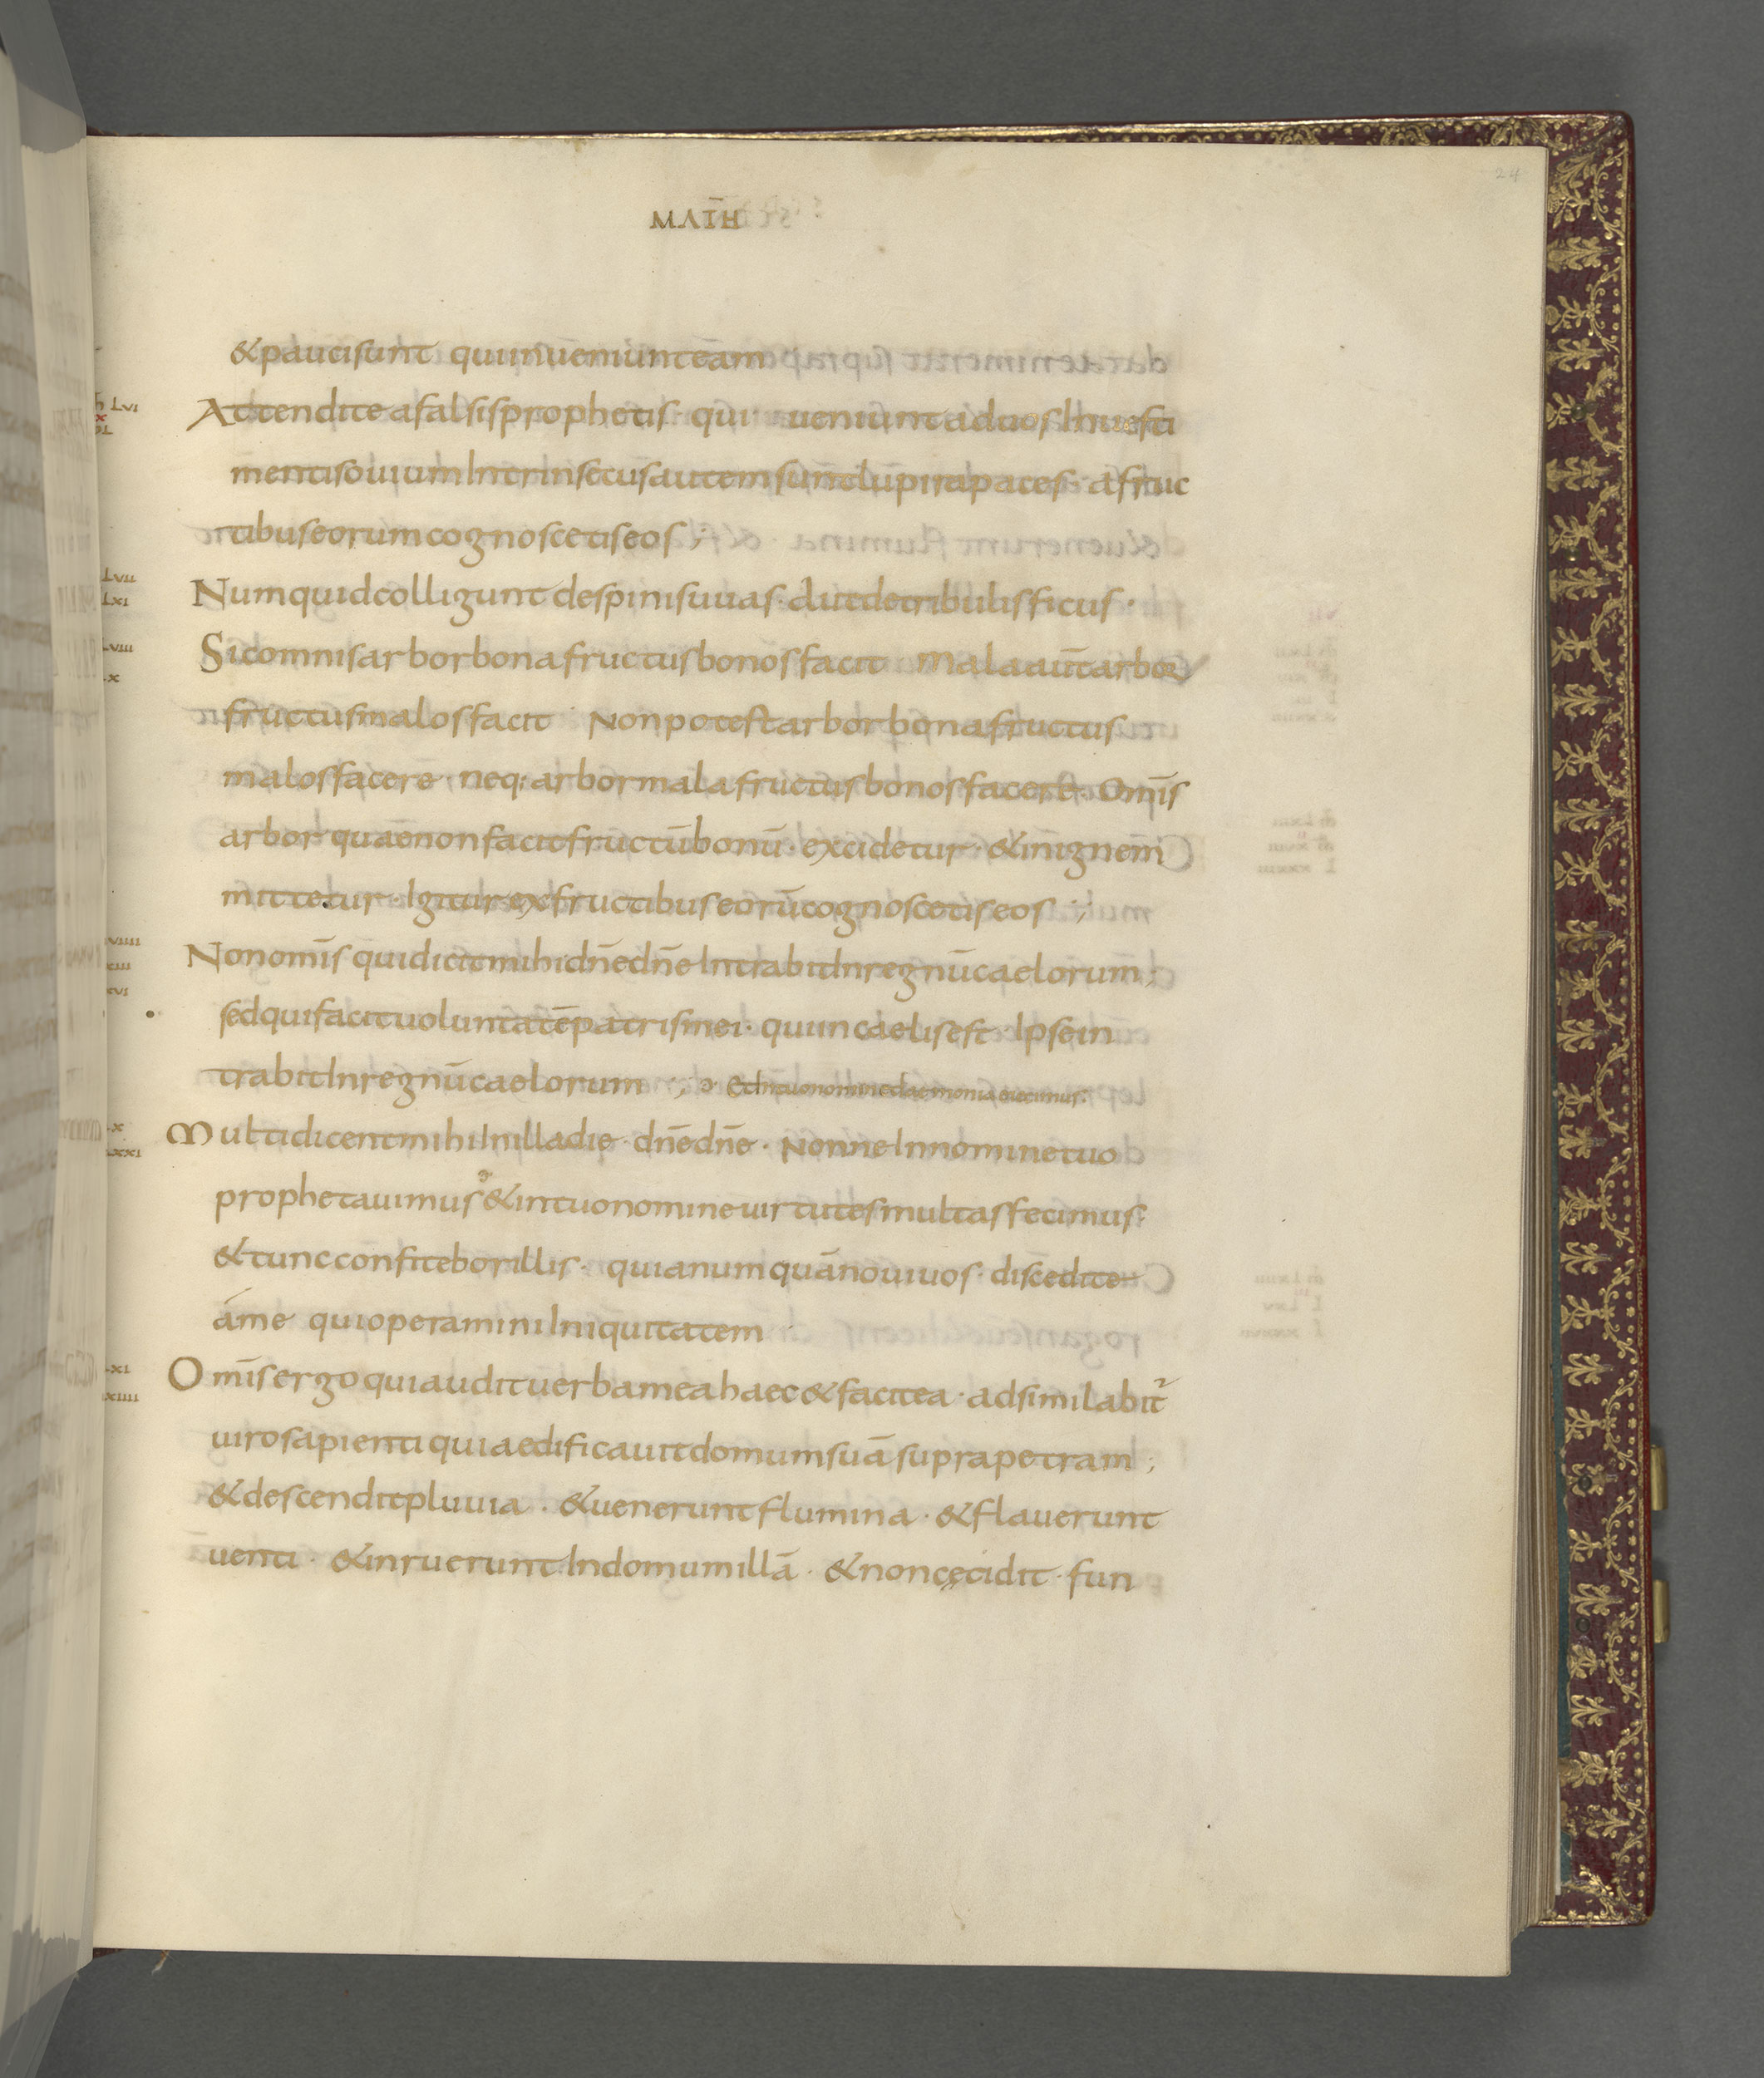 24
MATH
& pauci sunt qui inueniunt eam
Lvi
Attendite a falsis prophetis · qui ueniunt ad uos In uesti
mentis ouium Intrinsecus autem sunt lupi rapaces · a fruc
tibus eorum cognoscetis eos ;
Lvii
Lxi
Numquid colligunt de spinis uuas · aut de tribulis ficus ·
Lviii
Sic omnis arbor bona fructus bonos facit Mala aut̄ arbor
fructus malos facit · Non potest arbor bona fructus
malos facere · neq; arbor mala fructus bonos facere · Omīs
arbor quae non facit fructū bonū · excidetur · & in ignem
mittetur · Igitur ex fructibus eorū cognoscetis eos ;
Non omīs qui dicit mihi dn̄e dn̄e Intrabit In regnū caelorum ;
sed qui facit uoluntatē patris mei · qui in caelis est · Ipse in
trabit In regnū caelorum ; Et In tuo nomine daemonia eiecimus :
Multi dicent mihi In illa die · dn̄e dn̄e · Nonne In nomine tuo
prophetauimus & in tuo nomine uirtutes multas fecimus :
& tunc confitebor illis · quia numquā noui uos · discedite
a me qui operamini Iniquitatem
Omīs ergo qui audit uerba mea haec & facit ea · adsimilabit᷑
uiro sapienti qui aedificauit domum suā supra petram ;
& descendit pluuia · & uenerunt flumina · & flauerunt
uenti · & inruerunt In domum illā · & non cecidit · fun